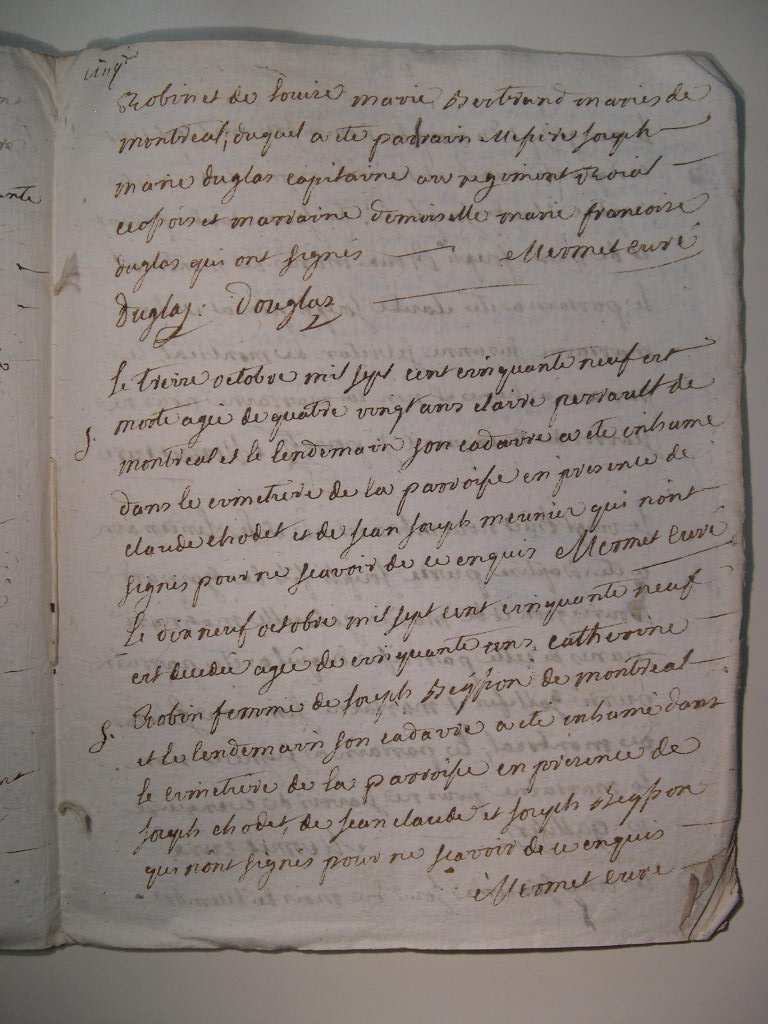 vingt
Robin et de louise marie Bertrand mariés de
montreal; duquel a ete parrain Messire Joseph
marie duglas capitaine au regiment Roial
et marraine demoiselle marie francoise
duglas qui ont signés Mermet curé
Duglas: Douglas
Le treize octobre mil sept cent cinquante neuf est
morte agée de quatre vingt ans claire perrault de
montreal et le lendemain son cadavre a ete inhumé
dans le cimetiere de la parroisse en presence de
claude chodet et de jean joseph meunier qui n'ont
signés pour ne scavoir de ce enquis Mermet curé
S.
Le dix neuf octobre mil sept cent cinquante neuf
est decedée agée de cinquante ans catherine
Robin femme de joseph Beysson de montreal
et le lendemain son cadavre a eté inhumé dans
le cimetiere de la parroisse en présence de
joseph chodet, de jean claude et joseph Beysson
qui n'ont signés pour ne scavoir de ce enquis
Mermet curé
S.